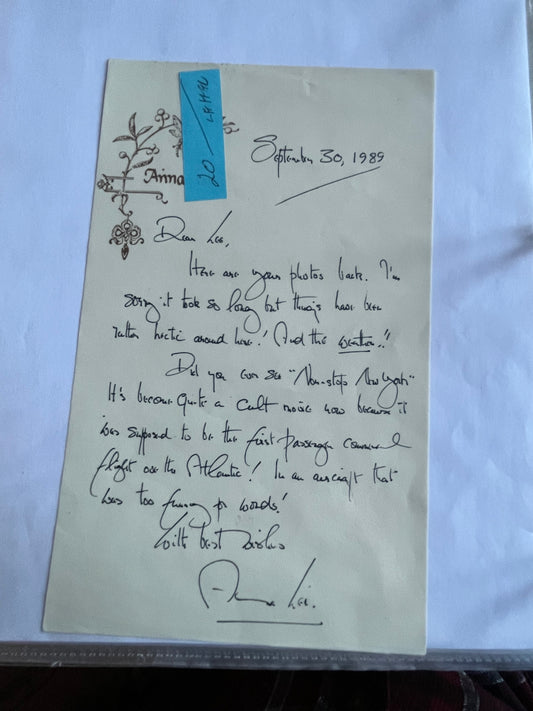 Anna
20
September 30, 1989
Dear Lee,
Here are your photos back. I'm
sorry it took so long but things have been
rather hectic around here! And the weather!!
Did you ever see "Non-stop New York"
It's become quite a cult movie now because it
was supposed to be the first passenger commercial
flight over the Atlantic! In an aircraft that
was too funny for words!
With best wishes
Anna Lee.